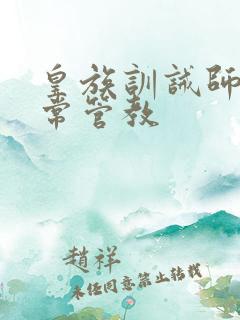 皇族訓誡師
常管教
趙祥
未经同意禁止转载